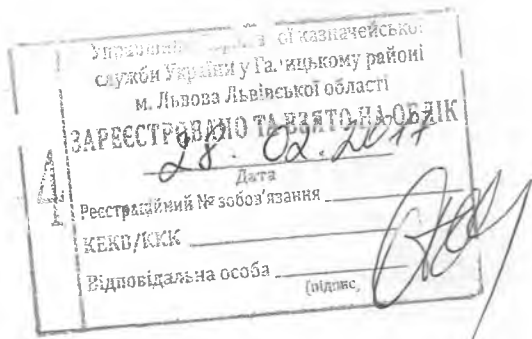 казначейської
служби України у Галицькому районі
м. Львова Львівської області
ЗАРЕЄСТРОВАНО ТА ВЗЯТО НА ОБЛІК
28. 02. 2017
Дата
Реєстраційний № зобов'язання
КЕКВ/ККК
Відповідальна особа
(підпис,